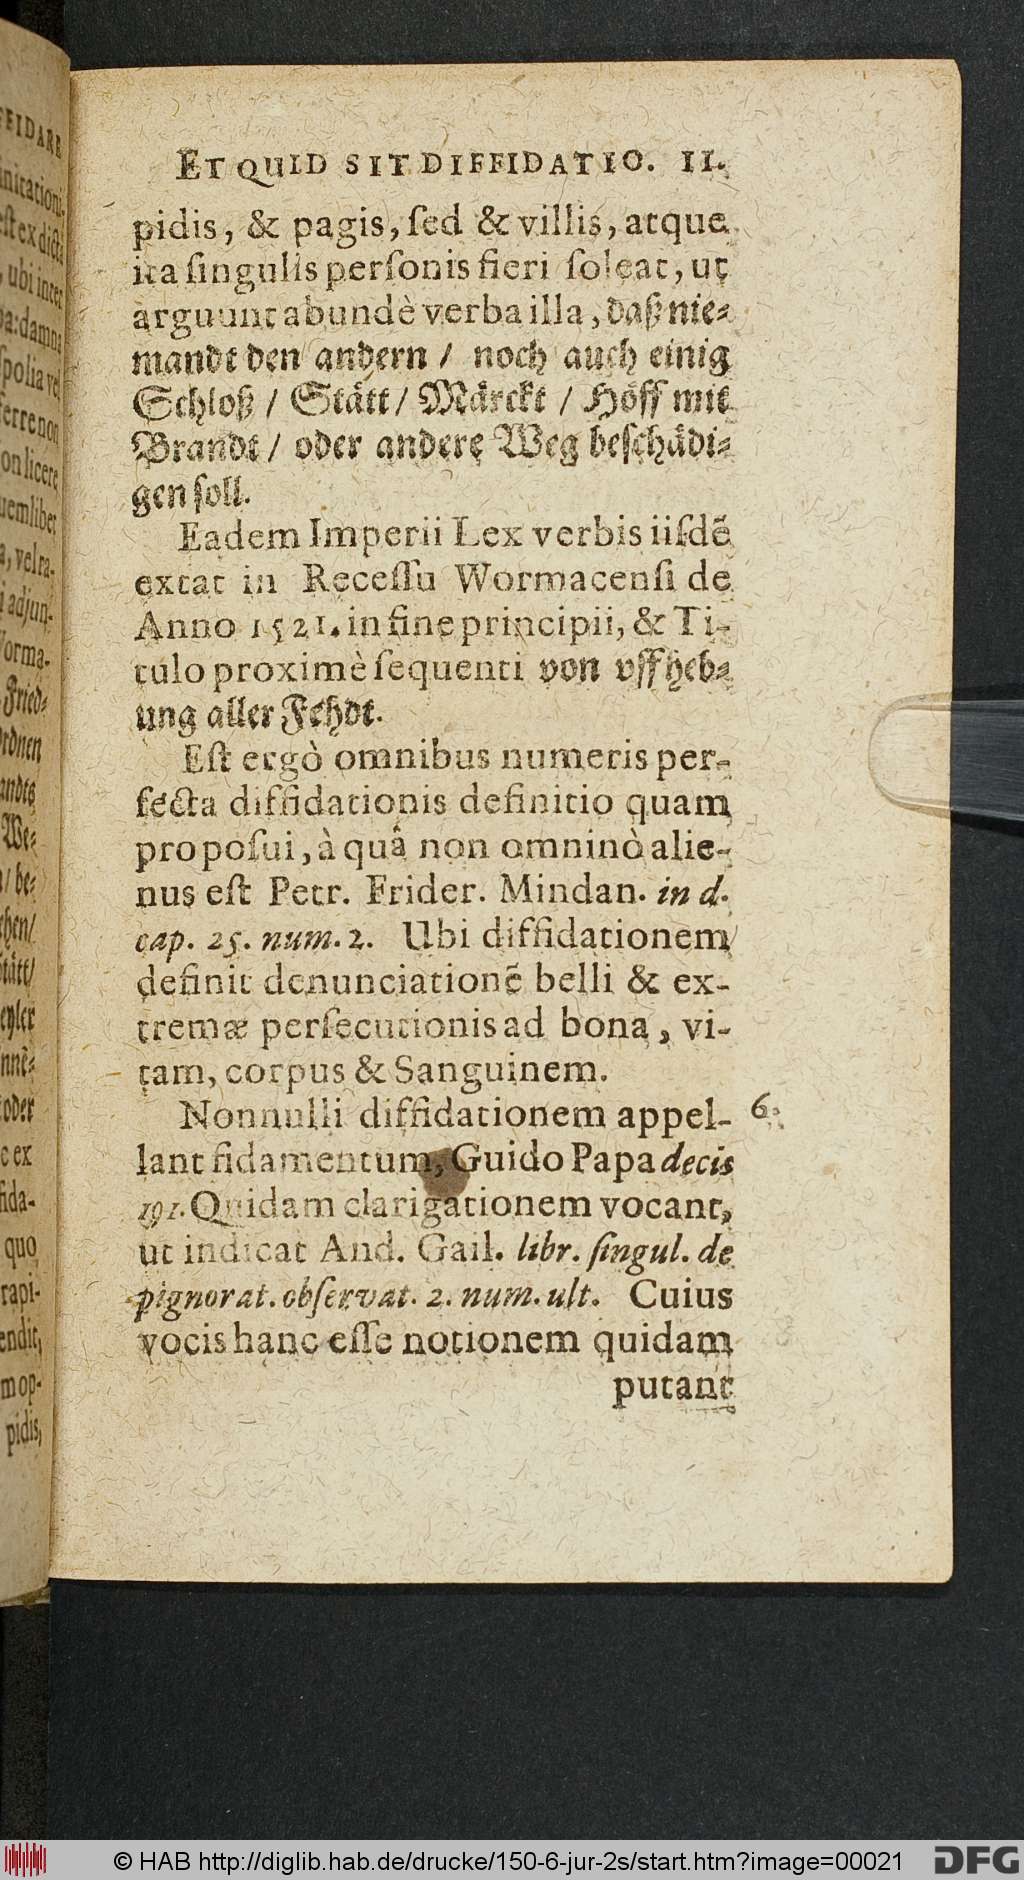 ET QUID SIT DIFFIDATIO. II.
pidis, & pagis, ſed & villis, atque
ita ſingulis perſonis fieri ſoleat, ut
arguunt abundè verba illa, daß nie⸗
mandt den andern / noch auch einig
Schloß / Stätt / Märckt / Höff mit
Brandt / oder andere Weg beſchädi⸗
gen ſoll.
Eadem Imperii Lex verbis iiſdẽ
extat in Receſſu Wormacenſi de
Anno 1521. in fine principii, & Ti-
tulo proximè ſequenti von vffheb⸗
ung aller Fehdt.
Eſt ergò omnibus numeris per-
fecta diffidationis definitio quam
propoſui, à quâ non omninò alie-
nus eſt Petr. Frider. Mindan. in d.
cap. 25. num. 2. Ubi diffidationem
definit denunciationẽ belli & ex-
tremæ perſecutionis ad bona, vi-
tam, corpus & Sanguinem.
Nonnulli diffidationem appel-
lant fidamentum, Guido Papa decis
191. Quidam clarigationem vocant,
ut indicat And. Gail. libr. ſingul. de
pignorat. obſervat. 2. num. ult. Cuius
vocis hanc eſſe notionem quidam
putant
6.
FFIDARE
eſt ex dicta
, ubi inter
damna
ſpolia vel
ferre non
on licere
uemlibet
a, vel ra-
i adjun-
Worma-
Fried⸗
We⸗
/ be⸗
oder
c ex
fida-
quo
rapi-
endit,
m op-
pidis,
© HAB http://diglib.hab.de/drucke/150-6-jur-2s/start.htm?image=00021
DFG